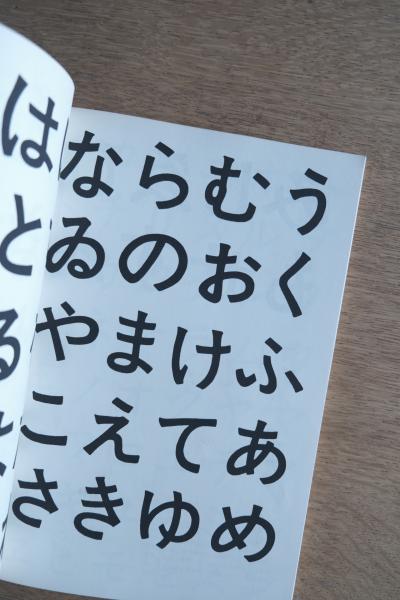 は
と
る
ならむう
ゐのおく
やまけふ
こえてあ
さきゆめ